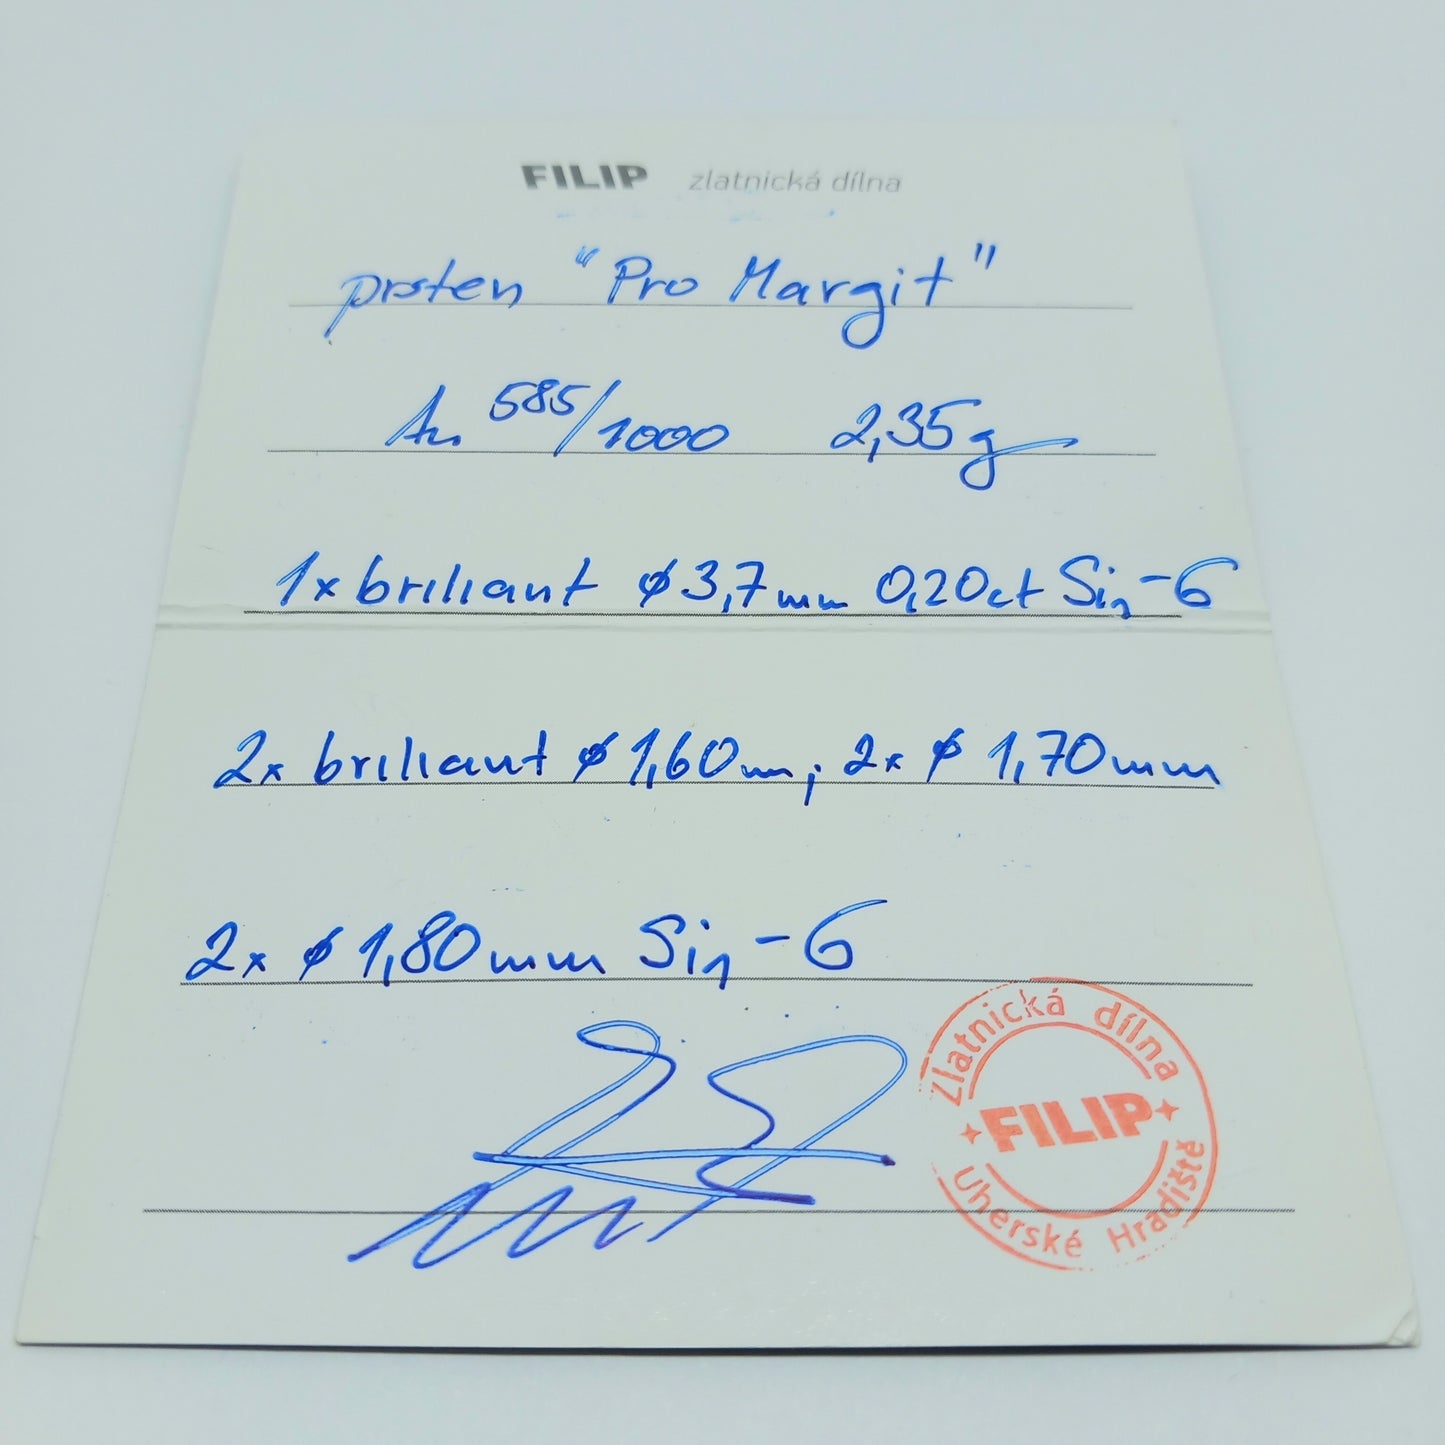 FILIP zlatnická dílna
prsten "Pro Margit"
Au 585/1000 2,35g
1x briliant ø 3,7mm 0,20ct Si1-G
2x briliant ø 1,60m; 2x ø 1,70mm
2x ø 1,80mm Si1-G
Zlatnická dílna
FILIP
Uherské Hradiště